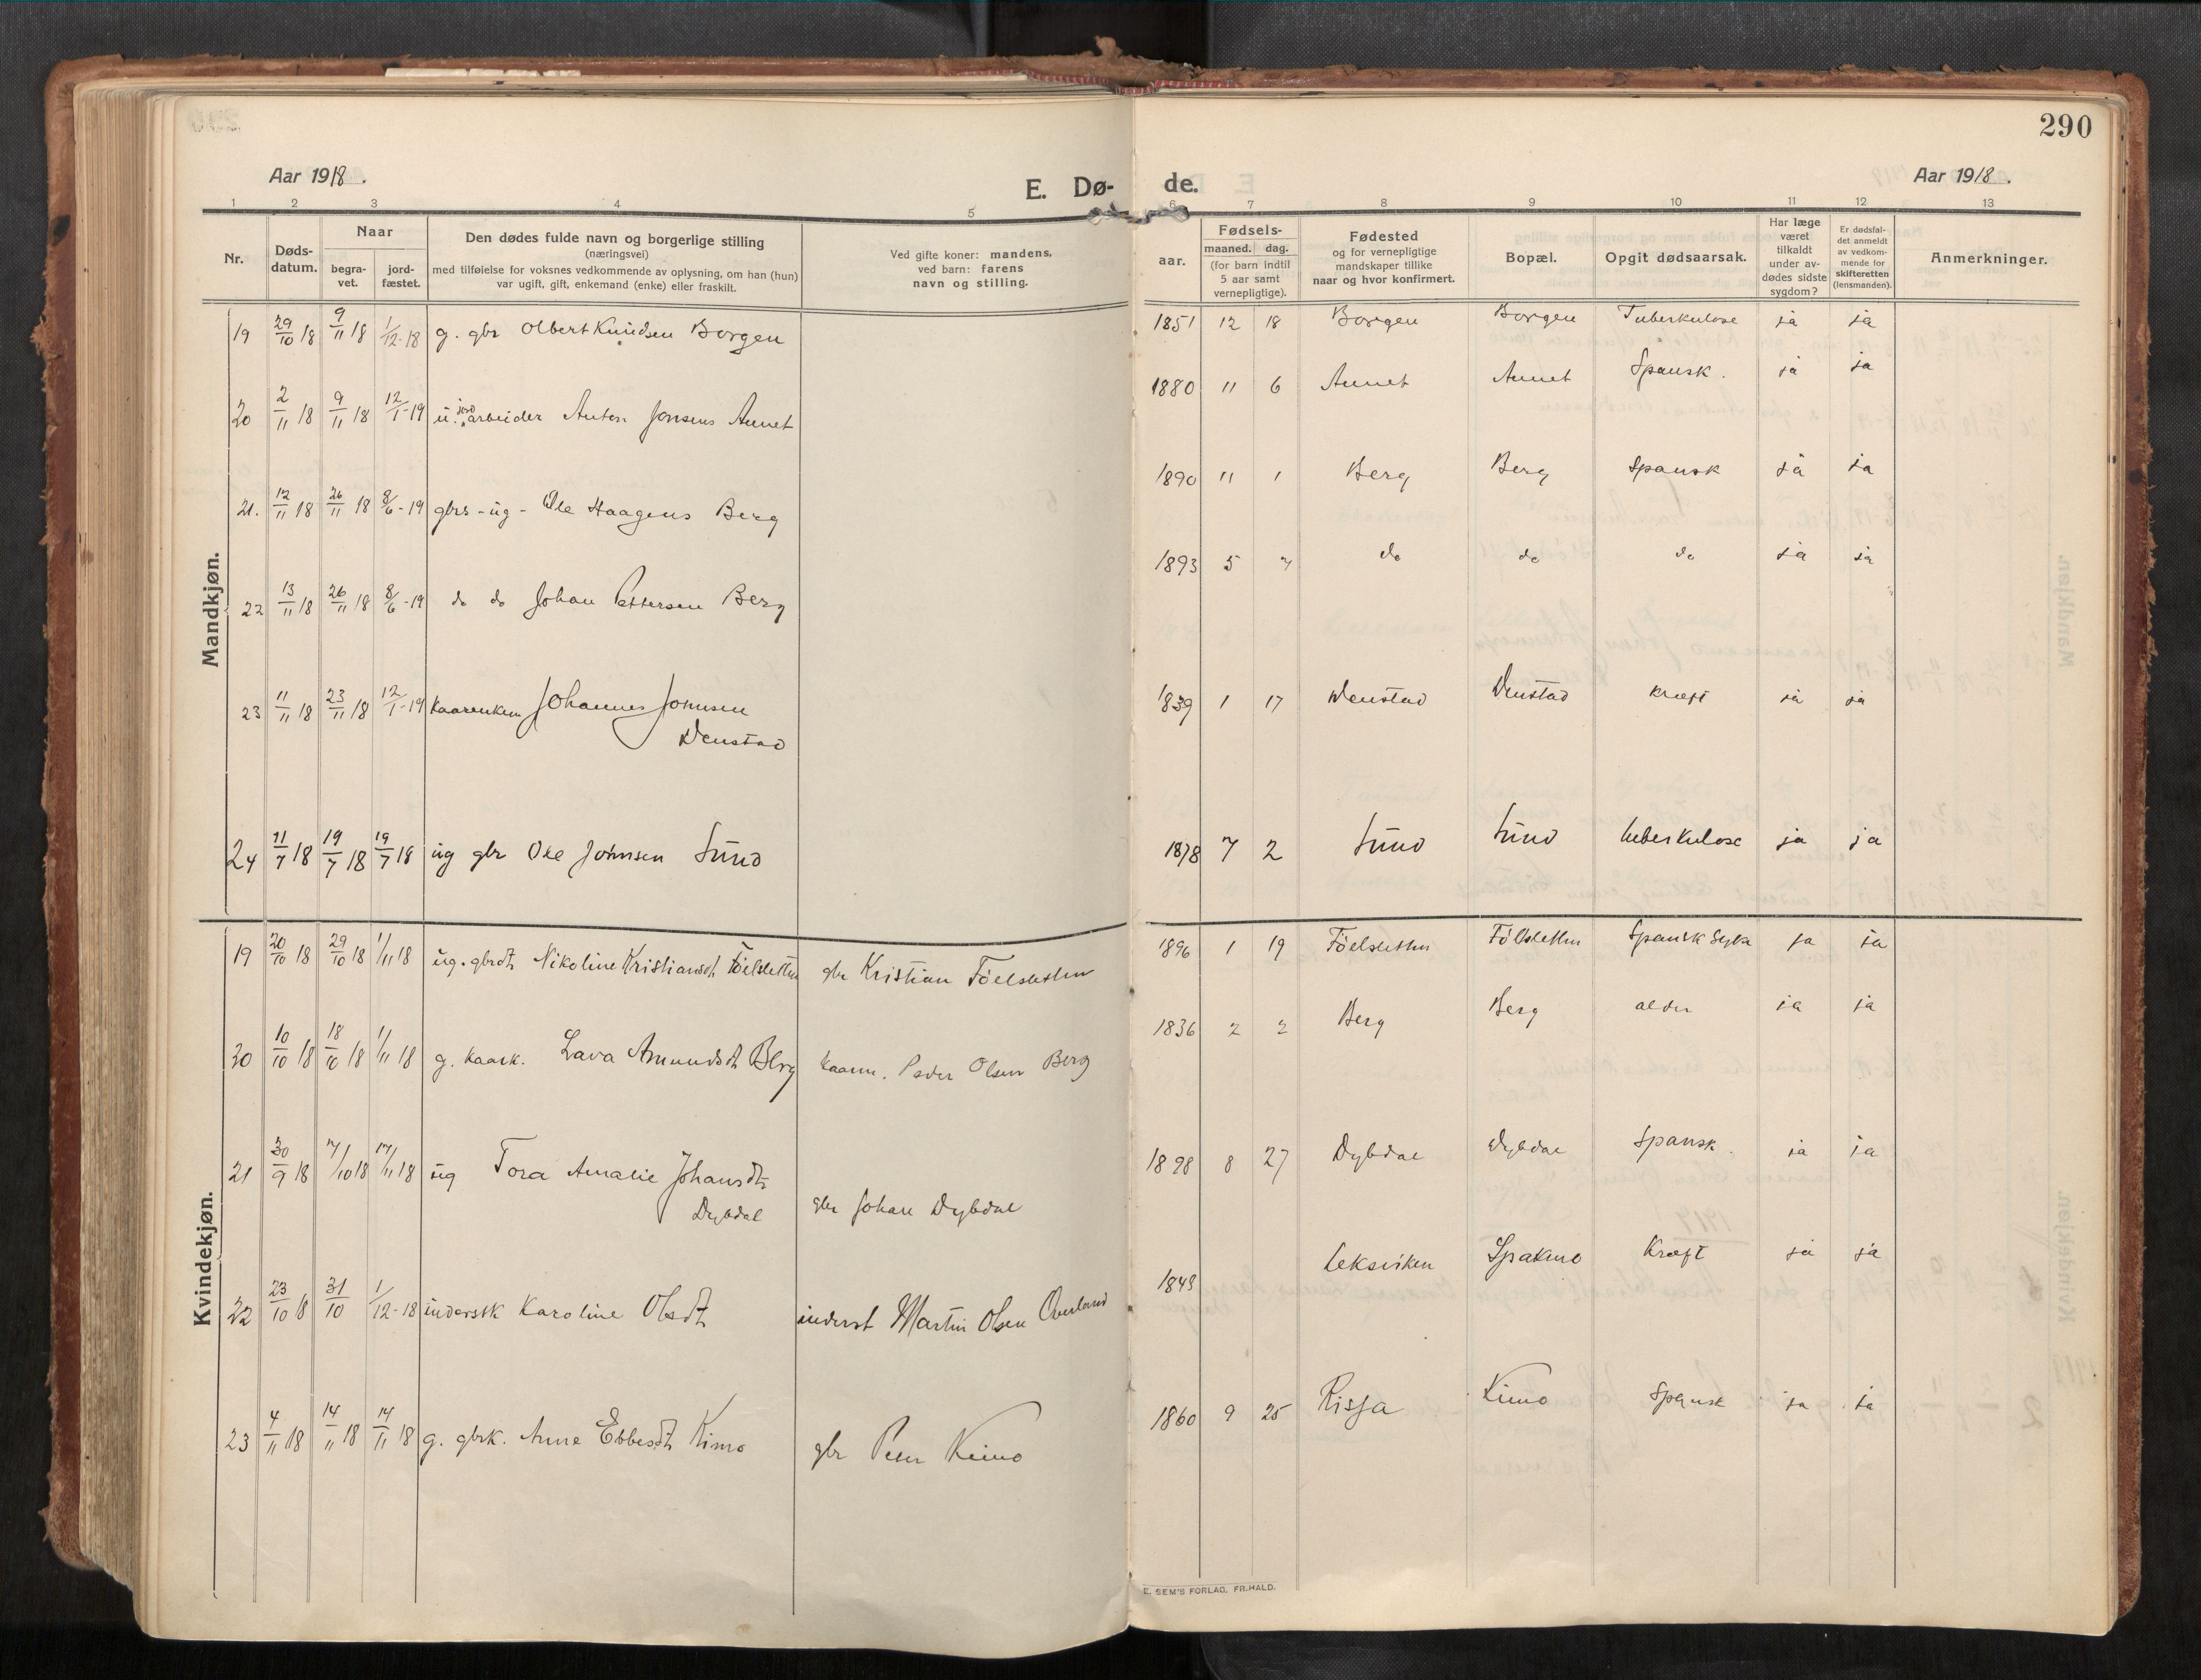 290
Aar 1918.
E. Dø-
de.
Aar 1918.
1 2 3 4 5 6 7 8 9 10 11 12 13
Nr.
Døds-
datum.
Naar
begra-
vet.
jord-
fæstet.
Den dødes fulde navn og borgerlige stilling
(næringsvei)
med tilføielse for voksnes vedkommende av oplysning, om han (hun)
var ugift, gift, enkemand (enke) eller fraskilt.
Ved gifte koner: mandens,
ved barn: farens
navn og stilling.
Fødsels-
aar.
maaned. dag.
(for barn indtil
5 aar samt
vernepligtige).
Fødested
og for vernepligtige
mandskaper tillike
naar og hvor konfirmert.
Bopæl.
Opgit dødsaarsak.
Har læge
været
tilkaldt
under av-
dødes sidste
sygdom?
Er dødsfal-
det anmeldt
av vedkom-
mende for
skifteretten
(lensmanden).
Anmerkninger.
Mandkjøn.
19 29/10 18 9/11 18 1/12-18 g. gbr Olbert Knudsen Borgen 1851 12 18 Borgen Borgen Tuberkulose ja ja
20 2/11 18 9/11 18 12/1-19 u. jordarbeider Anton Jonsens Aunet 1880 11 6 Aunet Aunet Spansk. ja ja
21. 12/11 18 26/11 18 8/6-19 gbrs - ug - Ole Haagens Berg 1890 11 1 Berg Berg Spansk ja ja
22 13/11 18 26/11 18 8/6-19 do do Johan Pettersen Berg 1893 5 7 do do do ja ja
23 11/11 18 23/11 18 12/1-19 kaarenkem Johannes Johnsen
Denstad 1839 1 17 Denstad Denstad kræft ja ja
24 11/7 18 19/7 18 19/7 18 ug gbr Ole Johnsen Sund 1878 7 2 Sund Sund tuberkulose ja ja
Kvindekjøn.
19 20/10 18 29/10 18 1/11 18 ug. gbrdt Nikoline Kristiansdt Föelsletten gbr Kristian Föelsletten 1896 1 19 Föelsletten Föllsletten Spansk Syke ja ja
30 10/10 18 18/10 18 1/11 18 g. kaark. Lava Amundsdt Berg kaarm. Peder Olsen Berg 1836 2 2 Berg Berg alder ja ja
21 30/9 18 7/10 18 17/11 18 ug Tora Amalie Johansdt
Dybdal gbr Johan Dybdal 1898 8 27 Dybdal Dybdal Spansk. ja ja
22 23/10 18 31/10 1/12-18 inderstk Karoline Olsdt inderst Martin Olsen Overland 1843 Leksviken Spakmo Kræft ja ja
23 4/11 18 14/11 18 14/11 18 g. gbrk. Anne Ebbesdt Kimo gbr Peter Kimo 1860 9 25 Rissa Kimo Spansk ja ja
E. SEM'S FORLAG, FR.HALD.